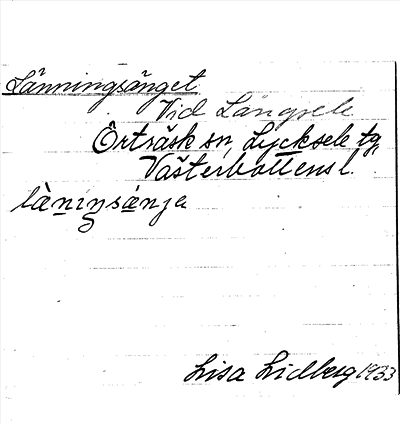 Länningsänget
Vid Långsele
Örträsk sn, Lycksele tg,
Västerbottens l.
làni̠ŋsa̠nje
Lisa Lidberg 1933